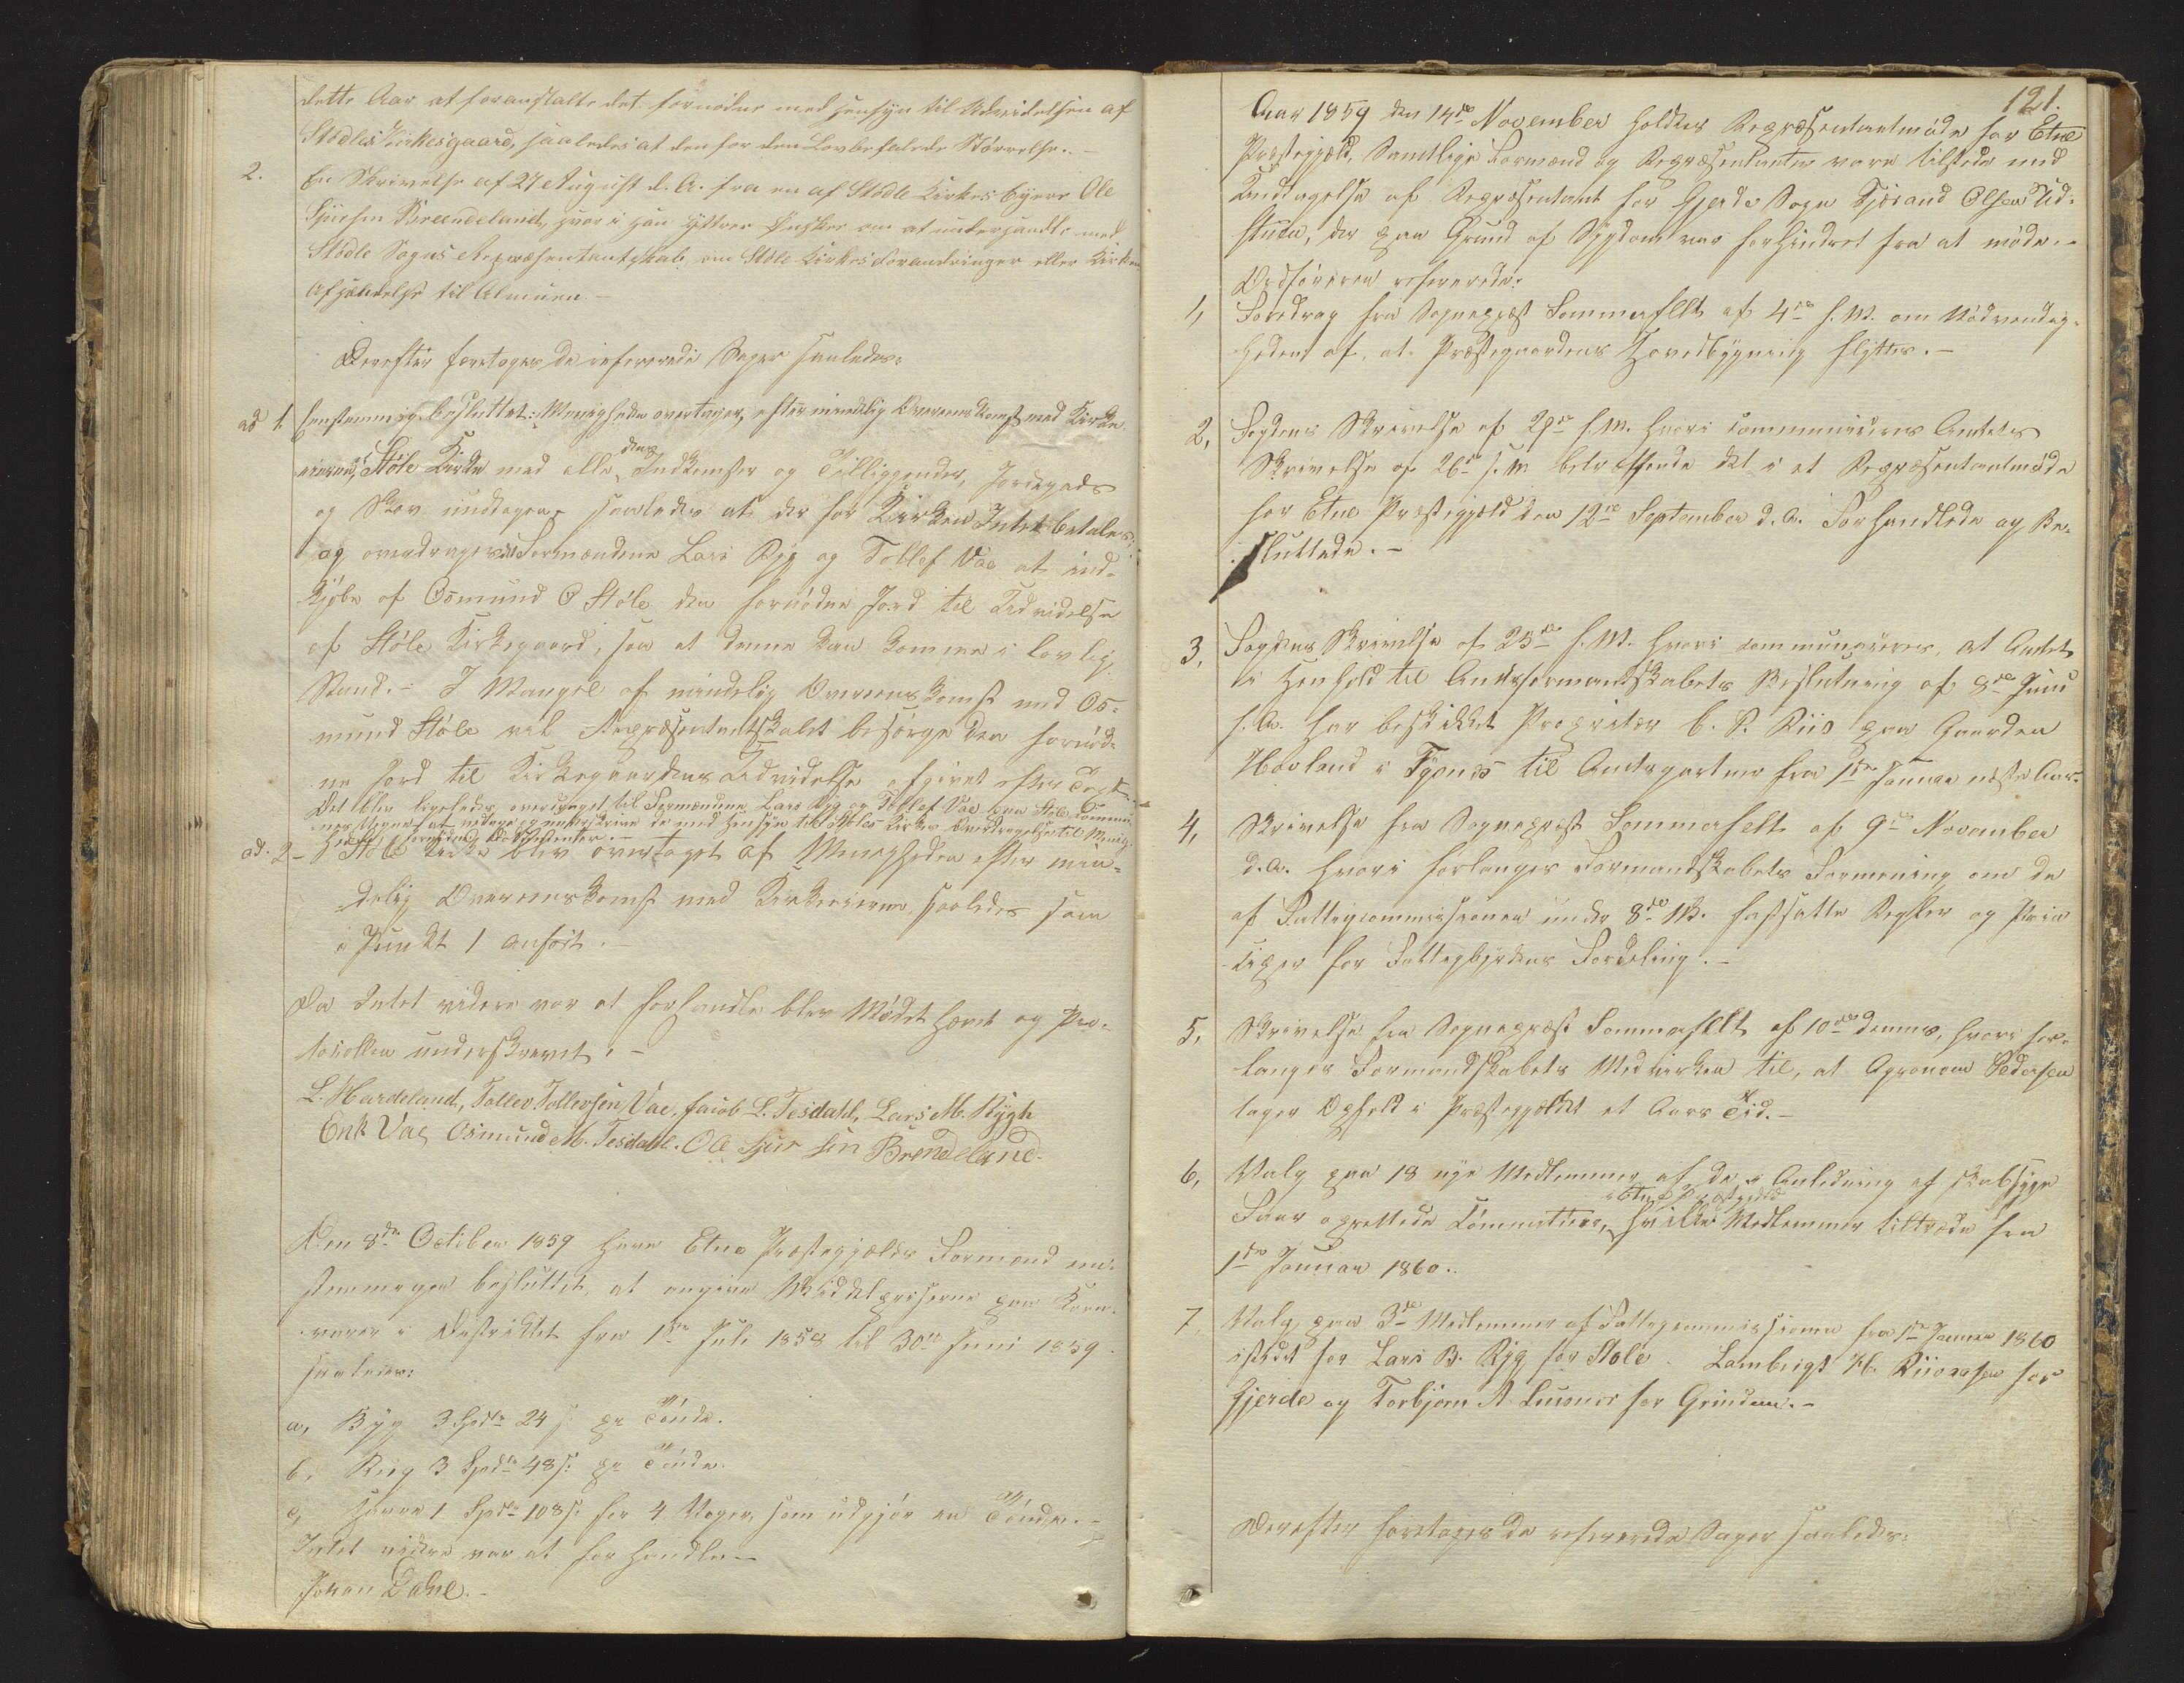 dette Aar at foranstalte det fornødne med Hensyn til Udvidelsen af
Stødles Kirkesgaard, saaledes at den faar den Lovbefalede Størrelse. –
2. En Skrivelse af 27 August d. A. fra en af Stødle Kirkes Ejere Ole
Sjursen Breendeland, hvori han yttrer Ønsker om at underhandle med
Stødle Sogns Repræsentantskab om Støle Kirkes Forandringer eller Kirkens
Afhændelse til Almuen –
Derefter foretoges de refererede Sager saaledes:
ad 1. Eenstemmig besluttet: Menigheden overtager, efter mindelig Overeenskomst med Kirke-
eierne, Støle Kirke med alle dens Indkomster og Tilliggender, Jordegods
og Skov undtagen, saaledes at der for Kirken Intet betales;
og overdrages det Formændene Lars Ryg og Tollef Vae at ind-
kjøbe af Osmund O Støle den fornødne Jord til Udvidelse
af Støle Kirkegaard, saa at denne kan komme i lovlig
Stand. – I Mangel af mindelig Overeenskomst med Os-
mund Støle vil Repræsentantskabet besørge den fornød-
ne Jord til Kirkegaardens Udvidelse afgivet efter Taxt. –
Det blev ligeledes overdraget til Formændene Lars Ryg og Tollef Vae paa Støle Commu-
nes Vegne at vedtage og underskrive de med Hensyn til Støles Kirkes Overdragelse til Menig-
heden fornødne Documenter. –
ad. 2 – Støle Kirke blev overtaget af Menigheden efter min-
delig Overeenskomst med Kirkeeierne saaledes som
i Punkt 1 anført. –
Da Intet videre var at forhandle blev Mødet hævet og Pro-
tocollen underskrevet. –
L. Hardeland, Tollev Tollevsen Vae, Jacob L. Tesdahl, Lars M. Rygh
Erik Vae Osmund M. Tesdahl. Ole Sjursen Brendeland.
Den 8de October 1859 have Etne Præstegjælds Formænd een-
stemmigen besluttet, at angive Middelpriserne paa Korn-
varer i Distriktet fra 1ste Juli 1858 til 30te Juni 1859
saaledes:
a, Byg 3 Spdlr 24 s. pr Tønde.
b, Rug 3 Spdlr 48 s. pr Tønde.
c, Havre 1 Spdlr 108 s. for 4 Voger, som udgjør en Tønde. –
Intet videre var at forhandle –
Johan Dahl. –
121.
Aar 1859 den 14de November holdtes Repræsentantmøde for Etne
Præstegjæld, Samtlige Formænd og Repræsentanter vare tilstede med
Undtagelse af Repræsentant for Gjerde Sogn Tjærand Olsen Ud-
stuen, der paa Grund af Sygdom var forhindret fra at møde. –
Ordføreren refererede:
1, Foredrag fra Sognepræst Sommerfeldt af 4de f. M. om Nødvendig-
heden af, at Præstegaardens Hovedbygning flyttes. –
2, Fogdens Skrivelse af 29de f. M. hvori communiceres Amtets
Skrivelse af 26de f. M. betræffende det i et Repræsentantmøde
for Etne Præstegjæld den 12te September d. A. Forhandlede og Be-
sluttede. –
3, Fogdens Skrivelse af 25de f. M. hvori communiceres, at Amtet
i Henhold til Amtsformandskabets Beslutning af 8de Juni
f. A. har beskikket Proprietær C. P. Riis paa Gaarden
Hovland i Tysnes til Amtsgartner fra 1ste Januar næste Aar.
4, Skrivelse fra Sognepræst Sommerfelt af 9de November
d. A. hvori forlanges Formandskabets Formening om de
af Fattigcommissionen under 8de M. fastsatte Regler og Prin-
ciper for Fattigbyrdens Fordeling. –
5, Skrivelse fra Sognepræst Sommerfeldt af 10de dennes, hvori for-
langes Formandskabets Medvirken til, at Agronom Pedersen
tager Ophold i Præstegjældet et Aars Tid. –
6, Valg paa 18 nye Medlemmer af de i Anledning af skabsyge
i Etne Præstegjeld
Faar oprettede Comiteer, hvilke Medlemmer tiltræde fra
1ste Januar 1860. –
7, Valg paa 3de Medlemmer af Fattigcommissionen fra 1ste Januar 1860
istedet for Lars B. Ryg for Støle. Lambrigt H. Riiorsen for
Gjerde og Torbjørn A. Lusnes for Grindem. –
Derefter foretoges de refererede Sager saaledes: